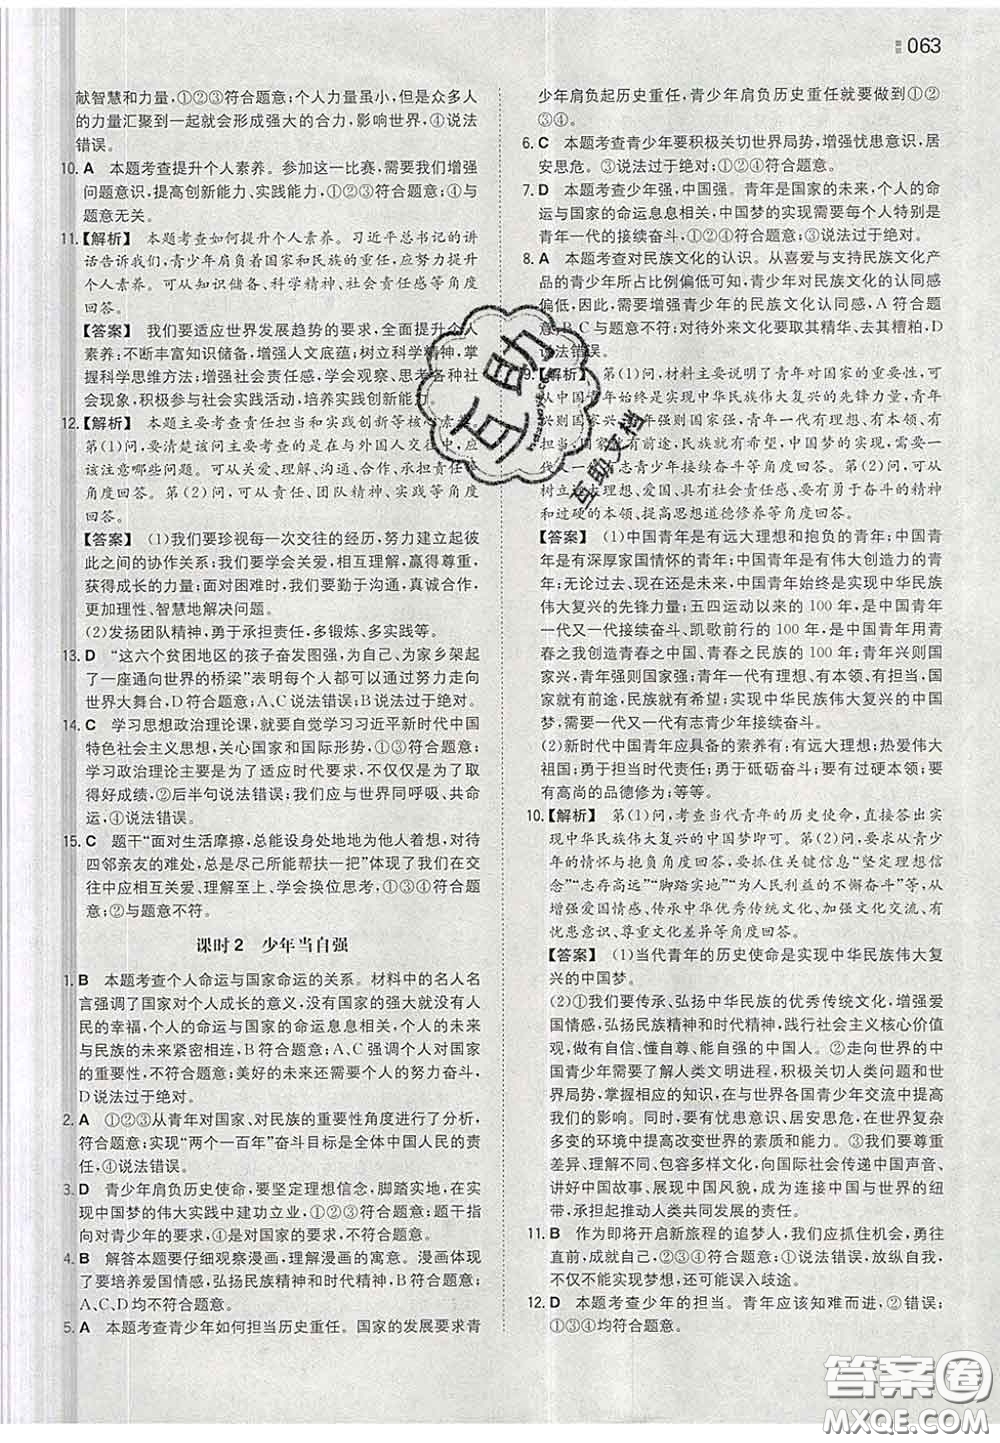 063
献智慧和力量,①②③符合题意;个人力量虽小,但是众多人
的力量汇聚到一起就会形成强大的合力,影响世界,④说法
错误。
10. A 本题考查提升个人素养。参加这一比赛,需要我们增强
问题意识,提高创新能力、实践能力,①②③符合题意;④与
题意无关。
11.【解析】 本题考查如何提升个人素养。习近平总书记的讲
话告诉我们,青少年肩负着国家和民族的重任,应努力提升
个人素养。可从知识储备、科学精神、社会责任感等角度
回答。
【答案】 我们要适应世界发展趋势的要求,全面提升个人
素养:不断丰富知识储备,增强人文底蕴;树立科学精神,掌
握科学思维方法;增强社会责任感,学会观察、思考各种社
会现象,积极参与社会实践活动,培养实践创新能力。
12.【解析】 本题主要考查责任担当和实践创新等核心素养。
第(1)问,要清楚该问主要考查的是在与外国人交往中,我们
应注意哪些问题。可从关爱、理解、沟通、合作等角度
回答。第(2)问,可从责任、团队精神、实践等角度
回答。
【答案】 (1)我们要珍视每一次交往的经历,努力建立起彼
此之间的协作关系;我们要学会关爱、互相理解,赢得尊重,
获得成长的力量;面对困难时,我们要勤于沟通,真诚合作,
更加理性、智慧地解决问题。
(2)发扬团队精神,勇于承担责任,多锻炼、多实践等。
13. D “这六个贫困地区的孩子奋发图强,为自己、为家乡架起
了一座通向世界的桥梁”表明每个人都可以通过努力走向
世界大舞台,D符合题意;A、C说法错误;B说法过于绝对。
14. C 学习思想政治理论课,就要自觉学习习近平新时代中国
特色社会主义思想,关心国家和国际形势,①③符合题意;
学习政治理论主要是为了适应时代要求,不仅仅是为了取
得好成绩,②后半句说法错误;我们应与世界同呼吸、共命
运,④说法错误。
15. C 题干“面对生活摩擦,总能设身处地地为他人着想,对待
四邻亲友的难处,总是尽己所能帮扶一把”体现了我们在交
往中应相互关爱、理解至上、学会换位思考,①③④符合题
意;②与题意不符。
课时2 少年当自强
1. B 本题考查个人命运与国家命运的关系。材料中的名人名
言强调了国家对个人成长的意义,没有国家的强大就没有人
民的幸福,个人的命运与国家的命运息息相关,个人的未来
与民族的未来紧密相连,B符合题意;A、C强调个人对国家
的重要性,不符合题意;美好的未来并不需要个人的努力奋斗,
D说法过于绝对。
2. A ①②③从青年对国家、对民族的重要性角度进行了分析,
符合题意;实现“两个一百年”奋斗目标是全体中国人民的责
任,④说法错误。
3. D 青少年肩负历史使命,要坚定理想信念,脚踏实地,在实
现中国梦的伟大实践中建功立业,①②③符合题意;题干是
指对青少年的要求,④是对国家的要求,不符合题意。
4. B 解答本题要仔细观察漫画,理解漫画的寓意。漫画体现
了要培养爱国情感,弘扬民族精神和时代精神,B符合题意;
A、C、D均不符合题意。
5. A 本题考查青少年如何担当历史重任。国家的发展要求青
少年肩负起历史重任,青少年肩负历史重任就要做到①②
③④。
6. C 本题考查青少年要积极关切世界局势,增强忧患意识,居
安思危。③说法过于绝对;①②④符合题意。
7. D 本题考查少年强,中国强。青年是国家的未来,个人的命
运与国家的命运息息相关,中国梦的实现需要每个人特别是
青年一代的接续奋斗,①②④符合题意;③说法过于绝对。
8. A 本题考查对民族文化的认识。从喜爱与支持民族文化产
品的青少年所占比例偏低可知,青少年对民族文化的认同感
偏低,因此,需要增强青少年的民族文化认同感,A符合题
意;B、C与题意不符;对待外来文化要取其精华、去其糟粕,D
说法错误。
9.【解析】 第(1)问,材料主要说明了青年对国家的重要性,可
从中国青年始终是实现中华民族伟大复兴的先锋力量,青年
兴则国家兴、青年强则国家强,青年一代有理想、有本领、有
担当,国家就有前途,民族就有希望,中国梦的实现需要一代
又一代有志青少年接续奋斗等角度回答。第(2)问,可从
树立远大理想、爱国、具有社会责任感、有勇于奋斗的精神
和过硬的本领、提高思想道德修养等角度回答。
【答案】 (1)中国青年是有远大理想和抱负的青年,中国青
年是有深厚家国情怀的青年,中国青年是有伟大创造力的青
年;无论过去、现在还是未来,中国青年始终是实现中华民族
伟大复兴的先锋力量;五四运动以来的100年,是中国青年
一代又一代接续奋斗、凯歌前行的100年,是中国青年用青
春之我创造青春之中国、青春之民族的100年;青年兴则国
家兴,青年强则国家强;青年一代有理想、有本领、有担当,国
家就有前途,民族就有希望;实现中华民族伟大复兴的中国
梦,需要一代又一代有志青少年接续奋斗。
(2)新时代中国青年应具备的素养有:有远大理想;热爱伟大
祖国;勇于担当时代责任;勇于砥砺奋斗;要有过硬本领;要
有高尚的品德修为;等等。
10.【解析】 第(1)问,考查当代青年的历史使命,直接答出实
现中华民族伟大复兴的中国梦即可。第(2)问,要求从青少
年的情怀与抱负角度回答。要抓住关键信息“坚定理想信
念”“志存高远”“脚踏实地”“为人民利益的不懈奋斗”等,从
增强爱国情感、传承中华优秀传统文化、加强品德修养、开
放意识、尊重文化差异等角度回答。
【答案】 (1)当代青年的历史使命是实现中华民族伟大复
兴的中国梦。
(2)①我们要传承、弘扬中华民族的优秀传统文化,增强爱
国情感,弘扬民族精神和时代精神,践行社会主义核心价值
观,做有自信、懂自尊、能自强的中国人。②走向世界的中
国青少年需要了解人类文明进程,积极参与公共活动,关注世
界局势,把握时代脉搏,理解当今世界各国青少年交流中对
我们的影响。同时,要有忧患意识、居安思危,在世界复杂
多变的环境中提高改变世界的素质和能力。③我们要尊重
差异、理解不同、包容多样文化,向国际社会传递中国声音、
讲好中国故事、展现中国风貌,成为连接中国与世界的纽
带,承担起推动人类共同发展的责任。
11. B 作为即将开启新旅程的追梦人,我们应抓住机会,勇往
直前,成就自己,②③④符合题意;①说法错误,放纵自我,
不仅不能实现梦想,还可能误入歧途。
12. D 本题考查少年的担当。青年应该知难而进,②错误;
①③④均符合题意。
互助
互助文档
答案卷
MXQE.COM